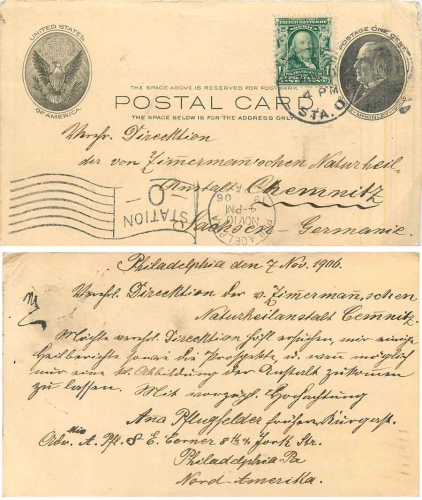 UNITED STATES
OF AMERICA
POSTAGE ONE CENT
THE SPACE ABOVE IS RESERVED FOR POSTMARK.
POSTAL CARD
THE SPACE BELOW IS FOR THE ADDRESS ONLY.
4 PM
STA. O
Verehr. Direcktion
der von Zimermann'schen Naturheil-
Anstalt Chemnitz
Sachsen - Germanie.
STATION
O
PHILADELPHIA
NOV 10
4-PM
06
Philadelphia den 7 Nov. 1906.
Verehrl. Direcktion der v. Zimermann,schen
Naturheilanstalt Cemnitz.
Möchte verehrl. Direcktion höfl ersuchen, mir einige
Heilberichte sowie die Prospekte u. wenn möglich
mir eine kl. Abbildung der Anstalt zukomen
zu lassen. Mit vorzügl. Hochachtung
Ana Pflugfelder
A. Pfl. S. E. Corner 8th & York Str.
Philadelphia Pa
Nord-Amerika.